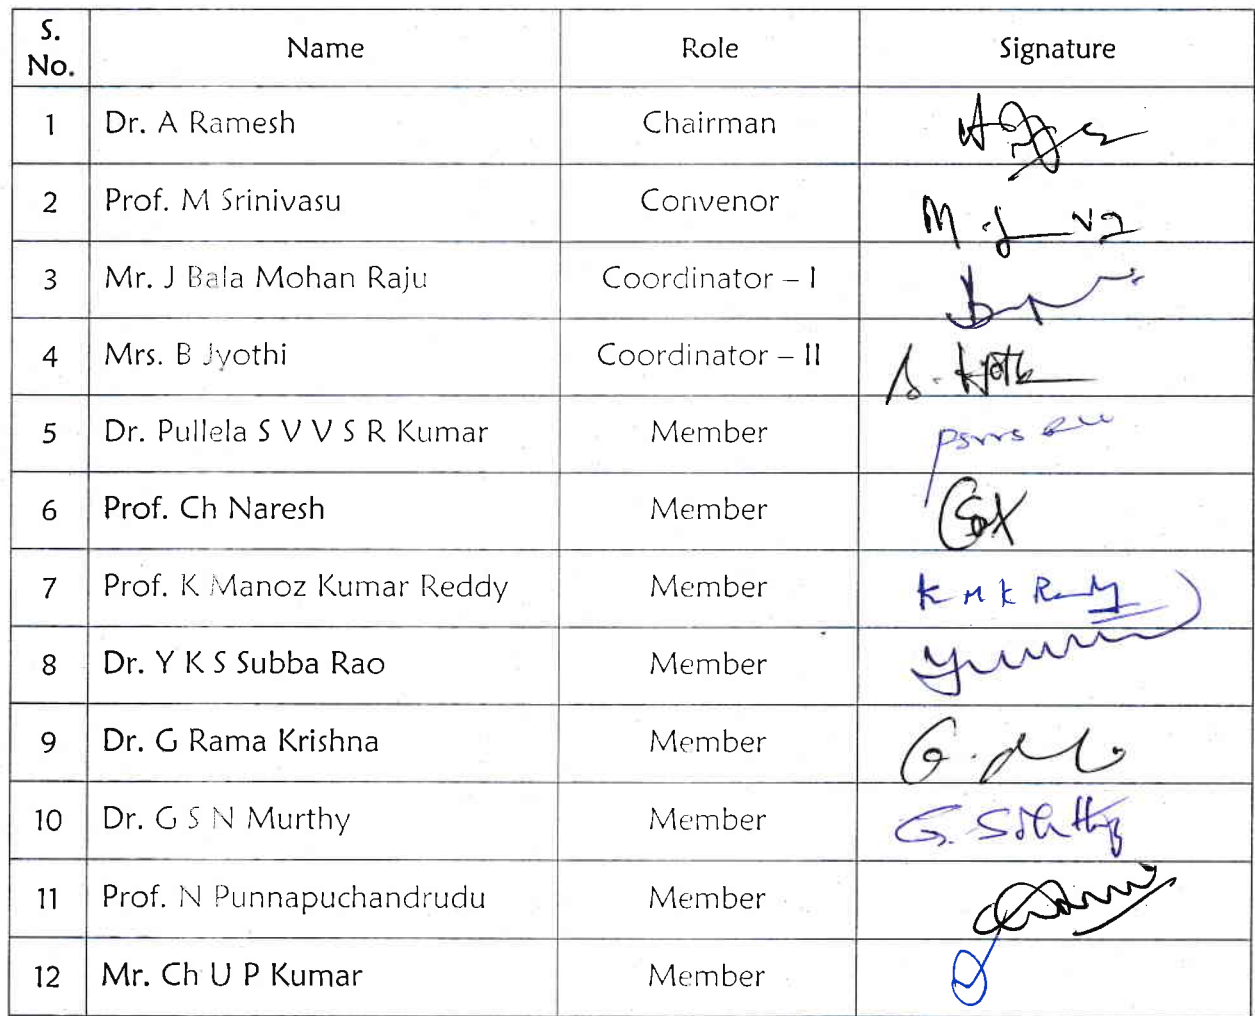 S. No. Name Role Signature
1 Dr. A Ramesh Chairman
2 Prof. M Srinivasu Convenor
3 Mr. J Bala Mohan Raju Coordinator – I
4 Mrs. B Jyothi Coordinator – II
5 Dr. Pullela S V V S R Kumar Member
6 Prof. Ch Naresh Member
7 Prof. K Manoz Kumar Reddy Member K M K Reddy
8 Dr. Y K S Subba Rao Member
9 Dr. G Rama Krishna Member
10 Dr. G S N Murthy Member
11 Prof. N Punnapuchandrudu Member
12 Mr. Ch U P Kumar Member